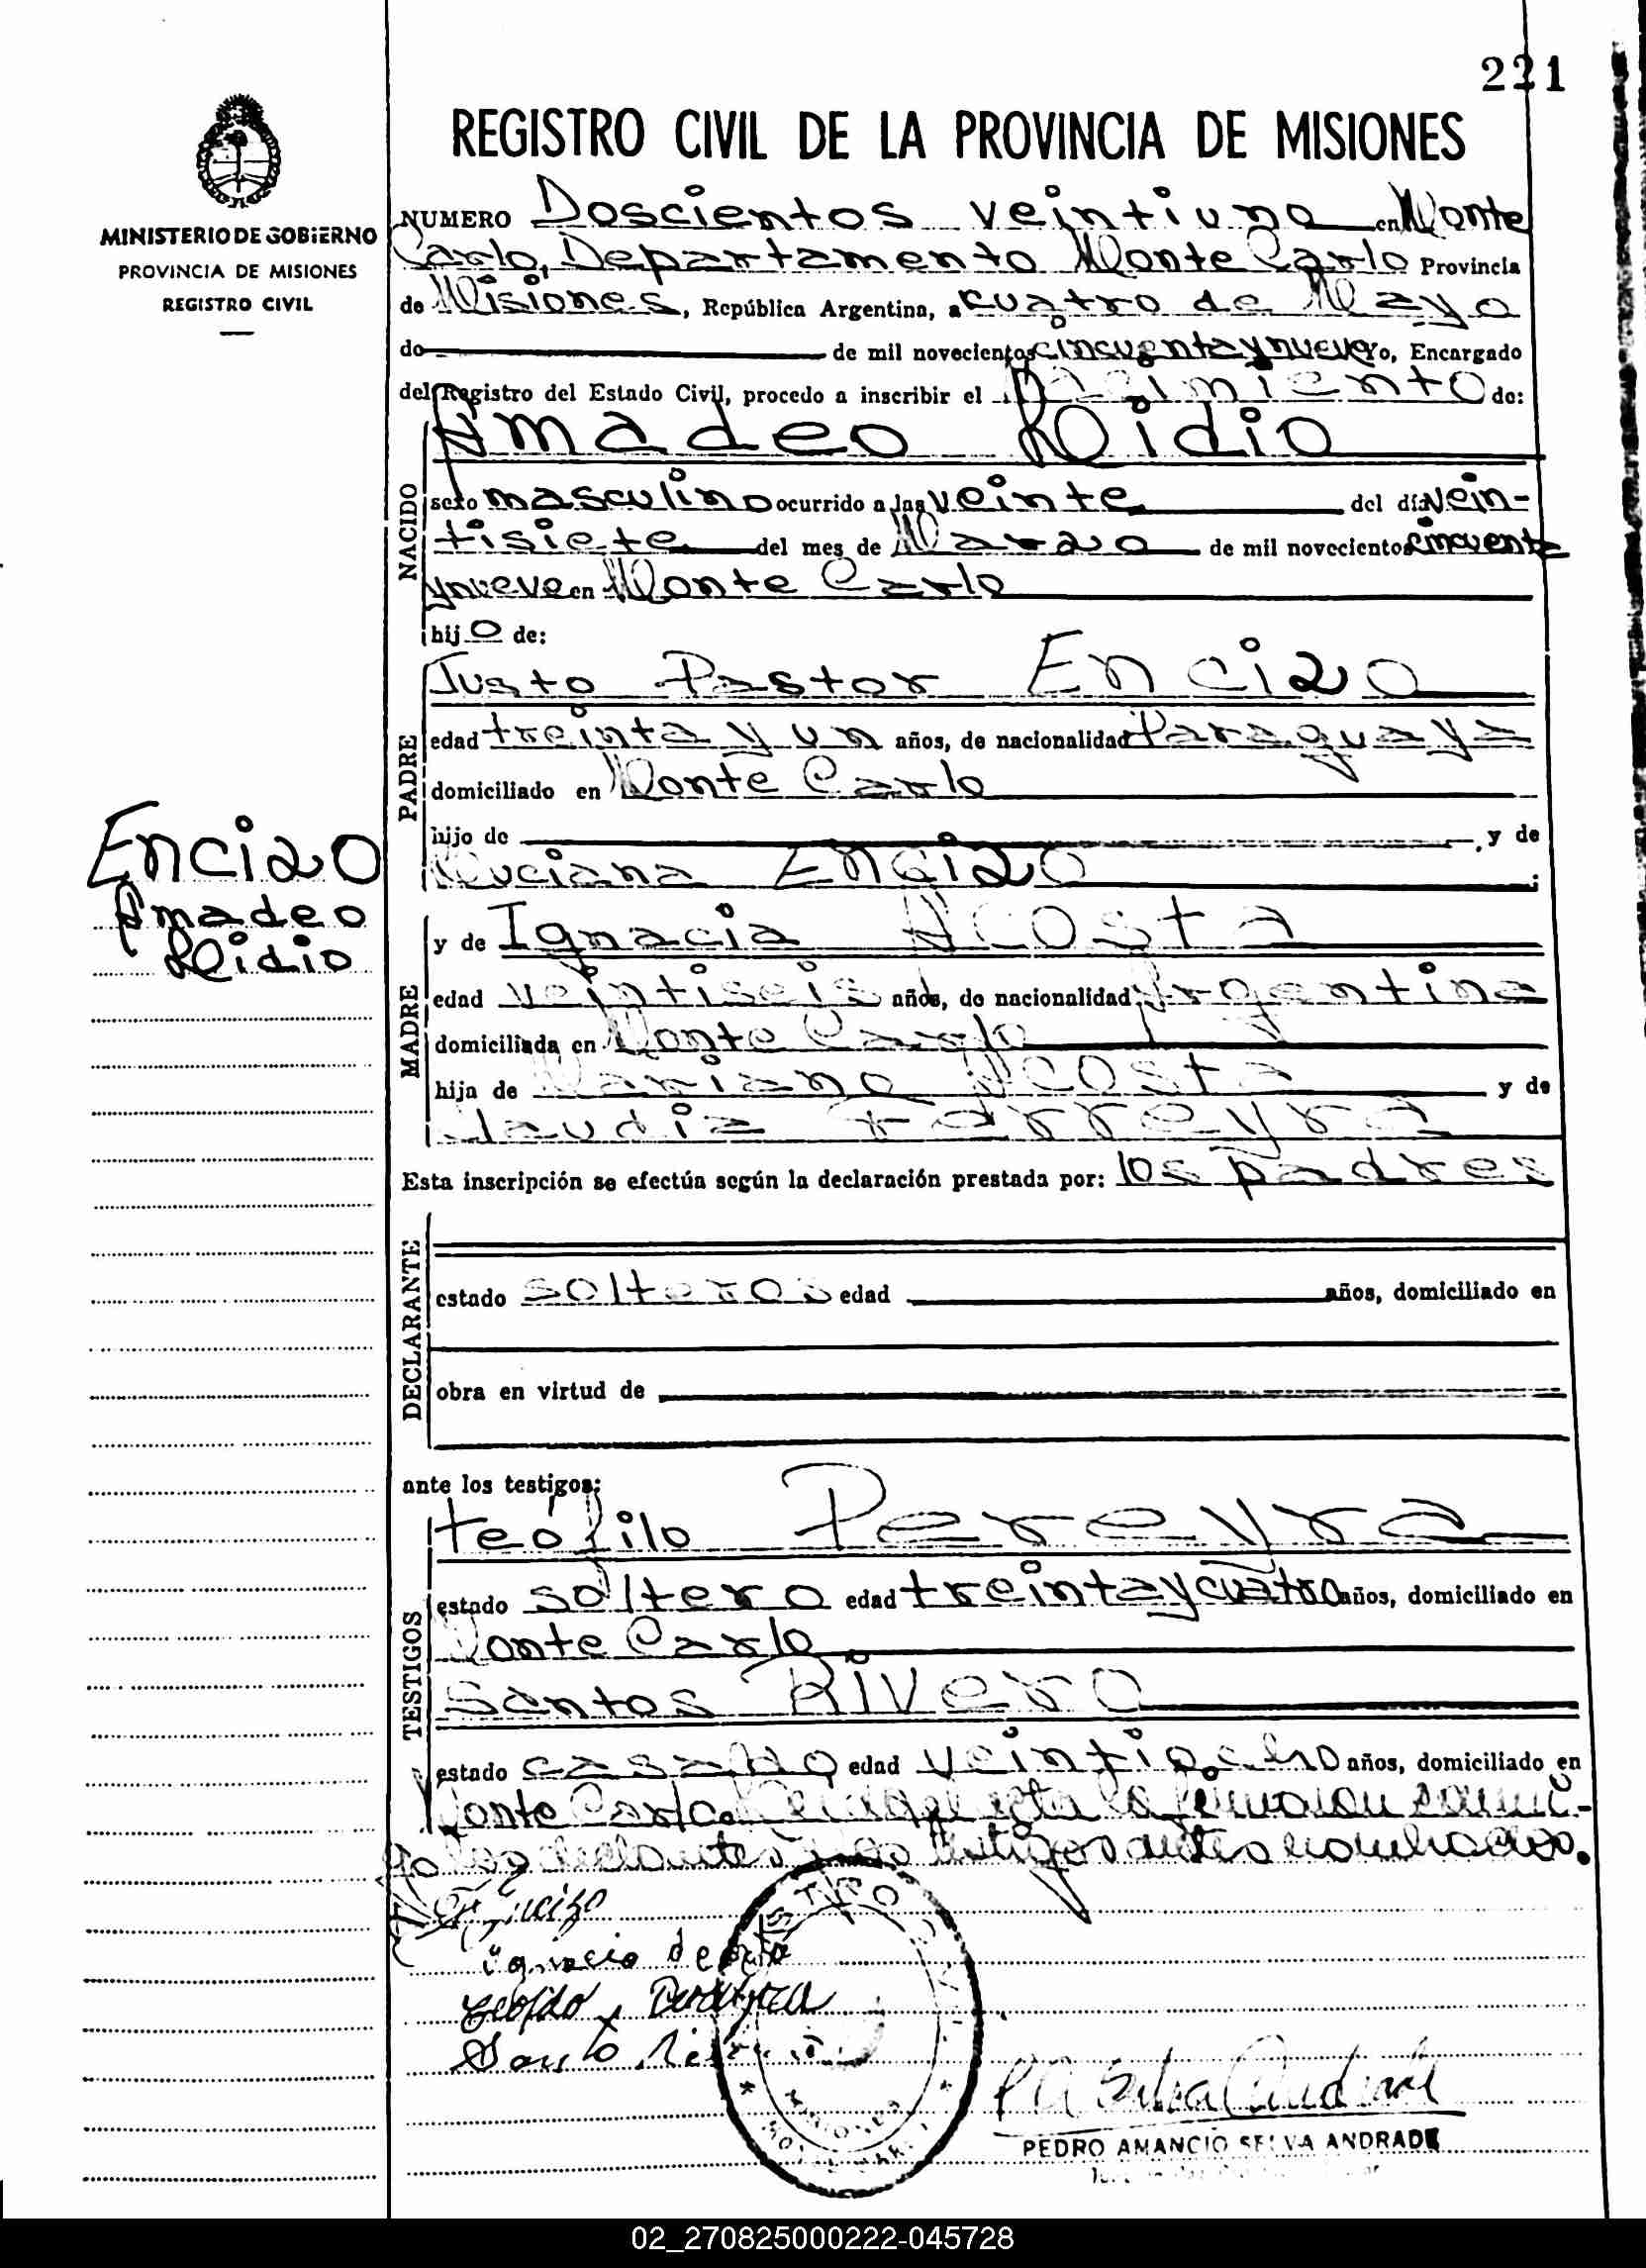 221
REGISTRO CIVIL DE LA PROVINCIA DE MISIONES
MINISTERIO DE GOBIERNO
PROVINCIA DE MISIONES
REGISTRO CIVIL
NUMERO Doscientos veintiuno en Monte
Carlo, Departamento Monte Carlo Provincia
de Misiones, República Argentina, a cuatro de Mayo
de de mil novecientos cincuenta y nueve yo, Encargado
del Registro del Estado Civil, procedo a inscribir el Nacimiento de:
Amadeo Elidio
NACIDO
sexo masculino ocurrido a las veinte del día vein-
tisiete del mes de Marzo de mil novecientos cincuenta
y nueve en Monte Carlo
hijo de:
Justo Pastor Encizo
PADRE
edad treinta y un años, de nacionalidad Paraguaya
domiciliado en Monte Carlo
hijo de , y de
Luciana Encizo ;
Encizo
Amadeo
Elidio
MADRE
y de Ignacia Acosta
edad veintiseis años, de nacionalidad Argentina
domiciliada en Monte Carlo
hija de Mariano Acosta y de
Claudia Farreyra
Esta inscripción se efectúa según la declaración prestada por: los padres
DECLARANTE
estado solteros edad años, domiciliado en
obra en virtud de
ante los testigos:
TESTIGOS
Teófilo Pereyra
estado soltero edad treinta y cuatro años, domiciliado en
Monte Carlo
Santos Rivero
estado casado edad veintiocho años, domiciliado en
Monte Carlo. Leida el acta la firmaron conmi-
go los declarantes y los testigos antes nombrados.
Encizo
PEDRO AMANCIO SELVA ANDRADE
02_270825000222-045728